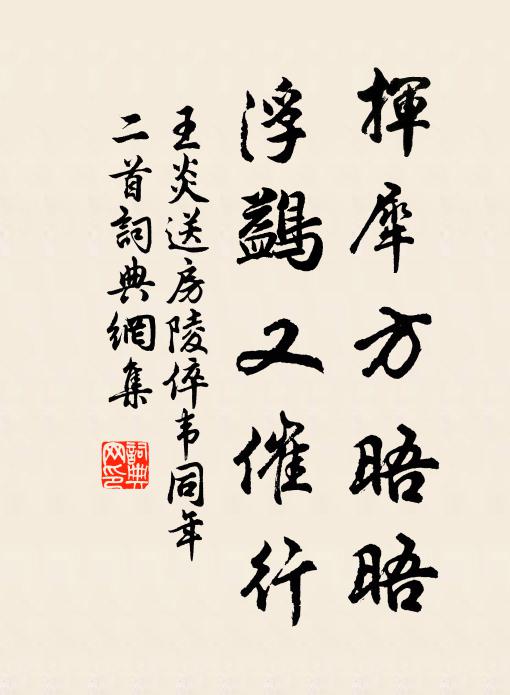 揮犀方晤晤
浮鷁又催行
王炎送房陵倅韦同年
二首詞典網集
詞典
网印